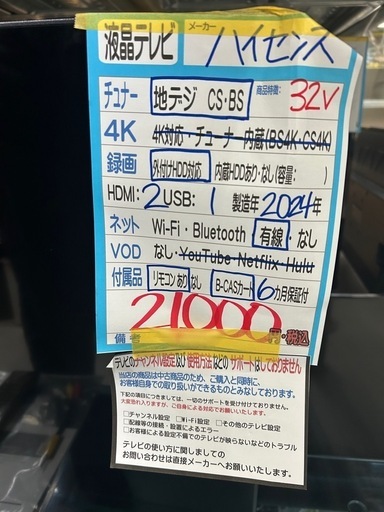 液晶テレビ メーカー ハイセンス
チュナー 地デジ CS・BS 商品特徴: 32V
4K 4K対応・チューナー内蔵(BS4K・CS4K)
録画 外付けHDD対応 内蔵HDDあり・なし(容量: )
HDMI: 2 USB: 1 製造年 2024年
ネット Wi-Fi・Bluetooth 有線・なし
VOD なし・YouTube・Netflix・Hulu
付属品 リモコンあり なし B-CASカード 6カ月保証付
21000 円・税込
備考
テレビのチャンネル設定及び使用方法などのサポートはしておりません
当店の商品は中古商品のため、ご購入と同時に、
お客様自身での取り扱いができるものとみなしております。
下記の項目につきましては、一切のサポートを受け付けておりません。
大変恐れ入りますが、ご自身による対応でお願いいたします。
□チャンネル設定 □Wi-Fi設定 □その他のテレビ設定
□配線等の接続・設置によるエラー
□お客様による設定不備でのテレビが映らないなどのトラブル
テレビの使い方に関しましての
お問い合わせは直接メーカーへお願いします。